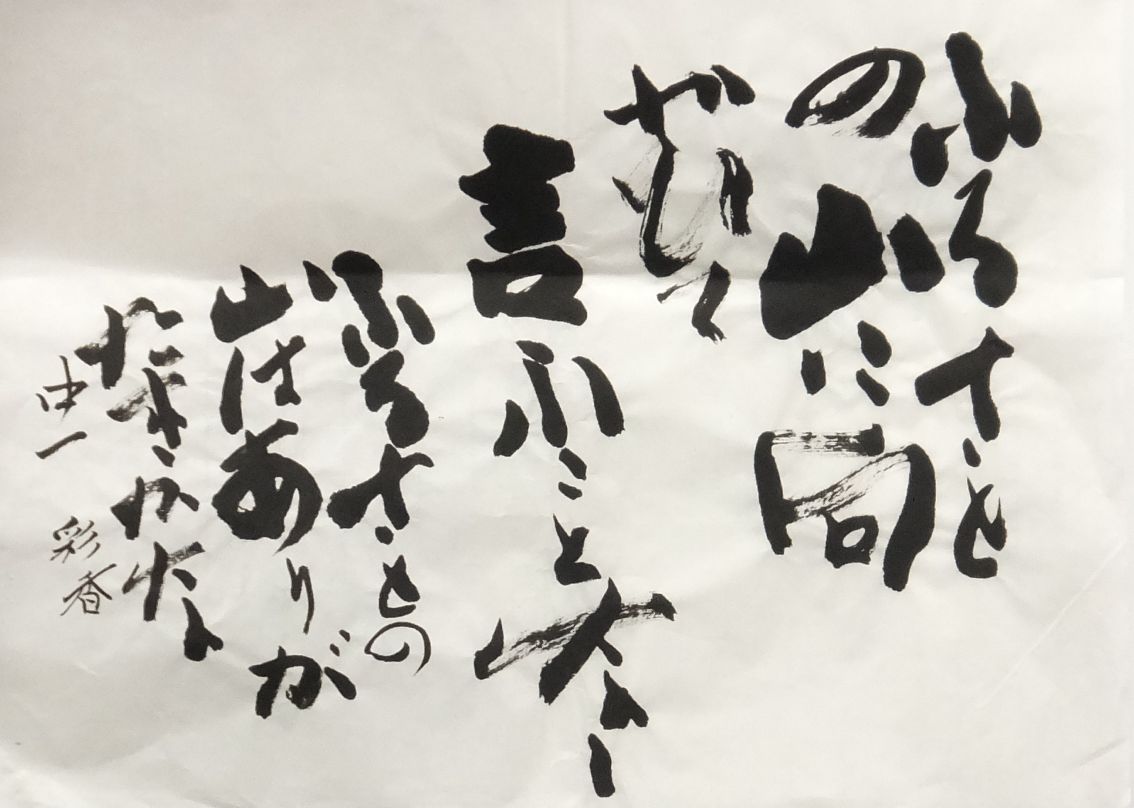 ふるさと
の山に向
ひて
言ふことなし
ふるさとの
山はありが
たきかな
由一
彩香